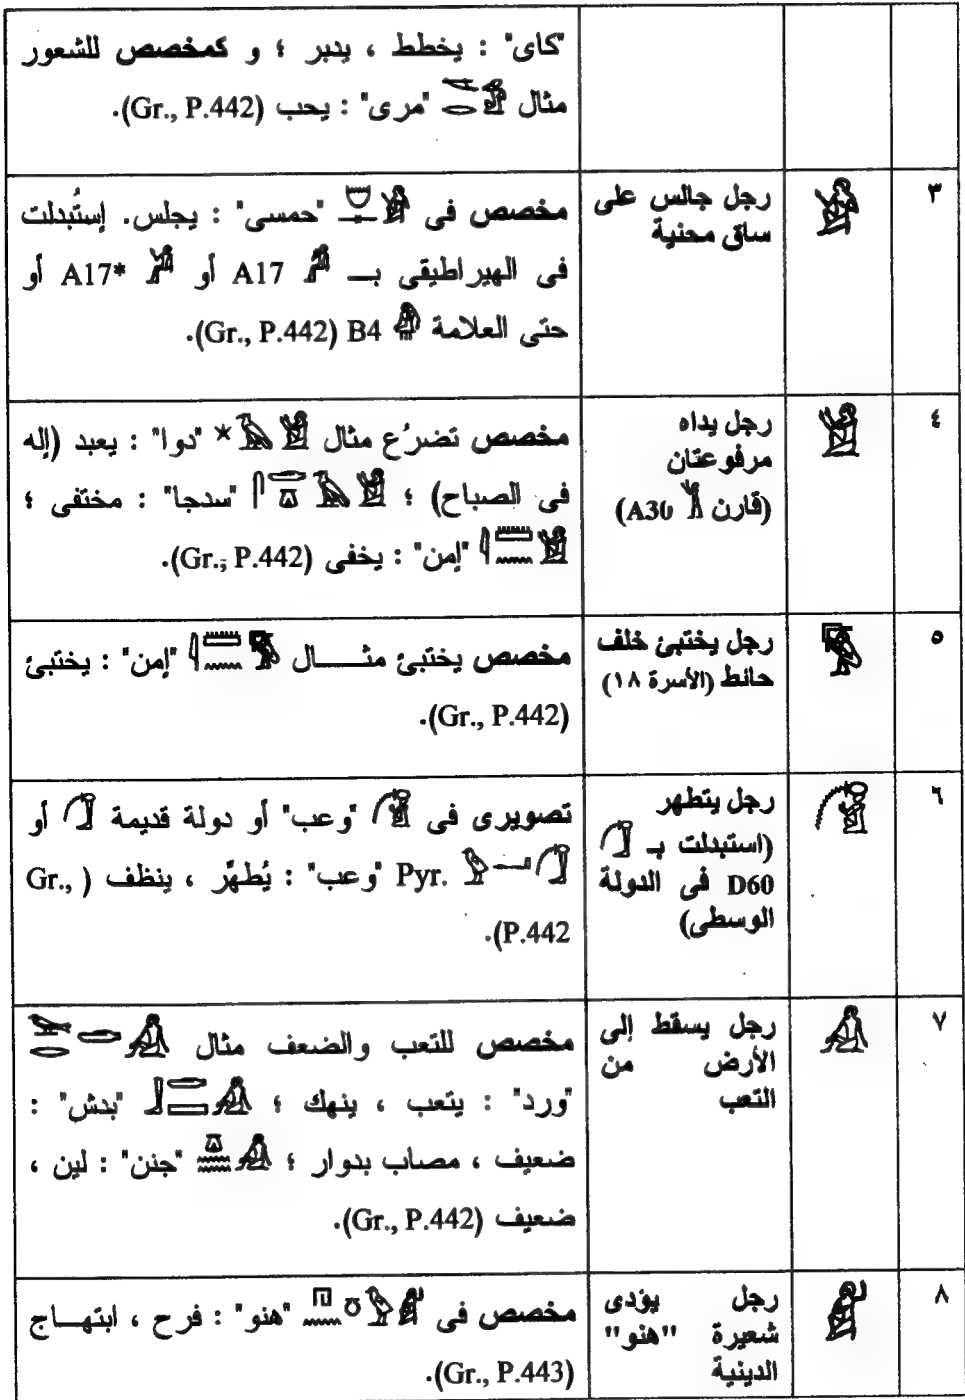 "كاى" : يخطط ، يدبر ؛ و كمخصص للشعور
مثال "مرى" : يحب (Gr., P.442).
٣
رجل جالس على
ساق محنية
مخصص فى "حمسى" : يجلس. إستُبدلت
فى الهيراطيقى بــ A17 أو A17* أو
حتى العلامة B4 (Gr., P.442).
٤
رجل يداه
مرفوعتان
(قارن A30)
مخصص تضرُع مثال "دوا" : يعبد (إله
فى الصباح) ؛ "سدجا" : مختفى ؛
"إمن" : يخفى (Gr., P.442).
٥
رجل يختبئ خلف
حائط (الأسرة ١٨)
مخصص يختبئ مثــــال "إمن" : يختبئ
(Gr., P.442).
٦
رجل يتطهر
(استبدلت بـ
D60 فى الدولة
الوسطى)
تصويرى فى "وعب" أو دولة قديمة أو
Pyr. "وعب" : يُطهِّر ، ينظف (Gr.,
P.442).
٧
رجل يسقط إلى
الأرض من
التعب
مخصص للتعب والضعف مثال
"ورد" : يتعب ، ينهك ؛ "بدش" :
ضعيف ، مصاب بدوار ؛ "جنن" : لين ،
ضعيف (Gr., P.442).
٨
رجل يؤدى
شعيرة "هنو"
الدينية
مخصص فى "هنو" : فرح ، ابتهــاج
(Gr., P.443).